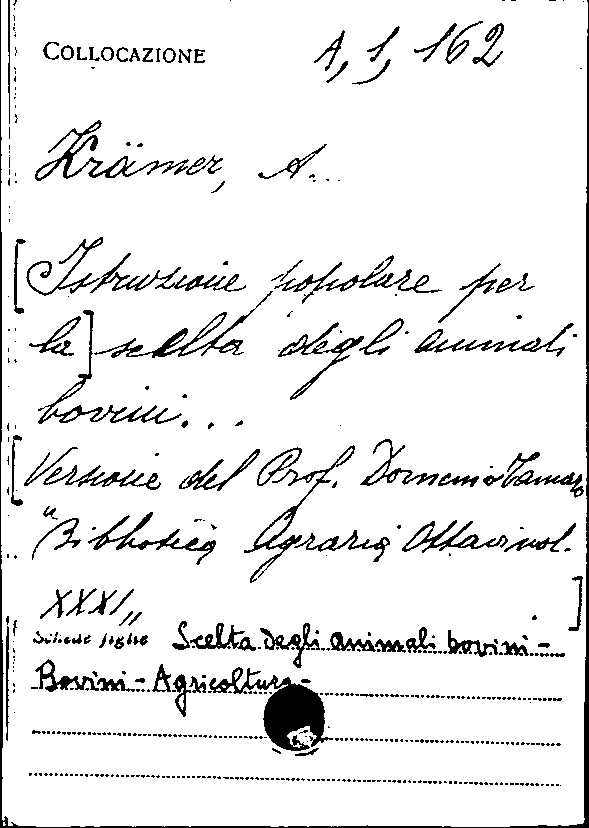 COLLOCAZIONE A, 1, 162
Krämer, A...
[Istruzione popolare per
la] scelta degli animali
bovini...
[Versione del Prof. Domenico Tamaro
"Biblioteca Agraria Ottavi vol.
XXXI„ ]
Schede figlie Scelta degli animali bovini -
Bovini - Agricoltura -